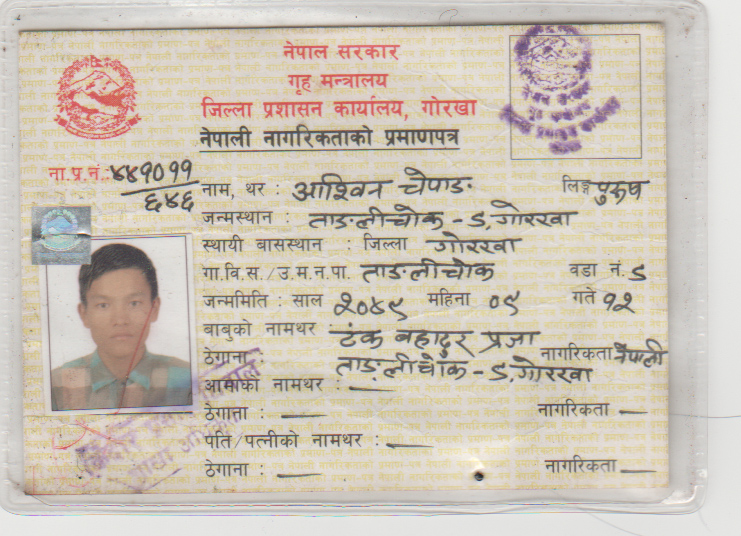 नेपाल सरकार
गृह मन्त्रालय
जिल्ला प्रशासन कार्यालय, गोरखा
नेपाली नागरिकताको प्रमाणपत्र
ना.प्र.नं.: ४४१०११/६४६
नाम, थर : आश्विन चेपाङ लिङ्ग पुरुष
जन्मस्थान : ताङलीचोक - ८, गोरखा
स्थायी बासस्थान : जिल्ला गोरखा
गा.वि.स./उ.म.न.पा. ताङलीचोक वडा नं. ८
जन्ममिति : साल २०४९ महिना ०९ गते १२
बाबुको नामथर टंक बहादुर प्रजा
ठेगाना : ताङ्लीचोक - ८, गोरखा नागरिकता नेपाली
आमाको नामथर : —
ठेगाना : — नागरिकता —
पति/पत्नीको नामथर : —
ठेगाना : — नागरिकता —